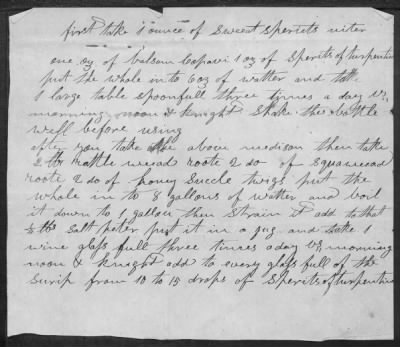 first take 1 ounce of Sweeat Spereits niter
one oz of balsam Capavi 1 oz of Sperits of turpentin
put the whole in to 6 oz of watter and take
1 large table spoonfull three times a day vs,
morning noon & knight Shake the bottle
well before using
after you take the above medison then take
2 lbs rattle weead roote 2 do of Squaweead
roote 2 do of honey Succle twigs put the
whole in to 8 gallons of watter and boil
it down to 1 gallon then Strain it add to that
½ lbs Salt peter put it in a jug and take 1
wine glass full three times a day vs morning
noon & knight add to every glass full of the
Surip from 10 to 15 drops of Sperits of turpentin